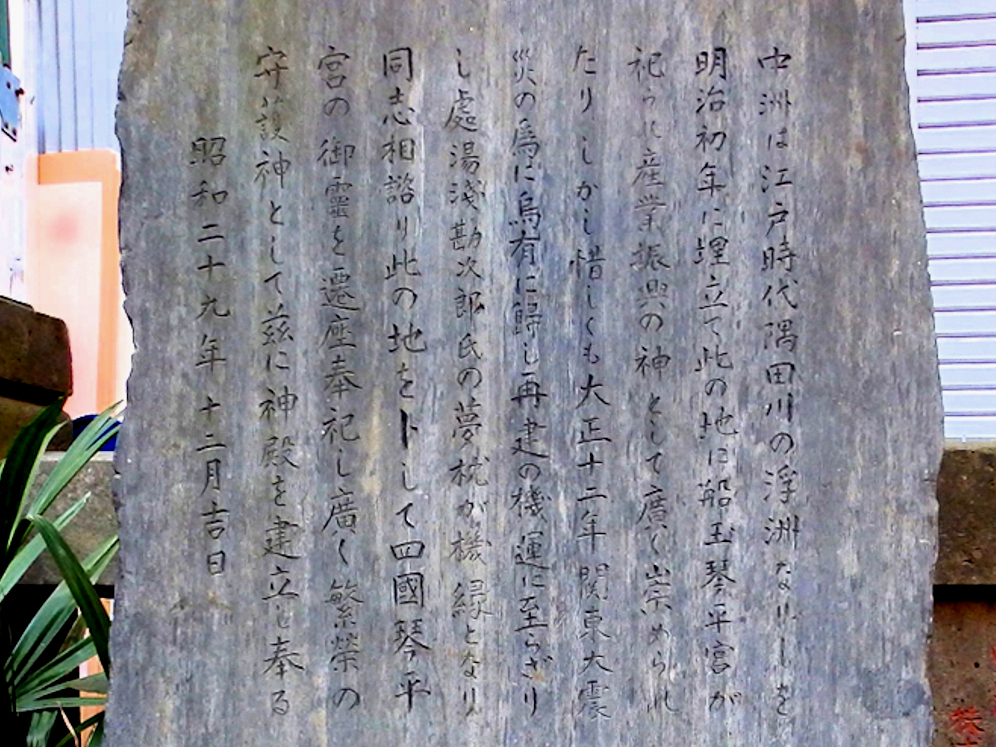 中洲は江戸時代隅田川の浮洲なりしを
明治初年に埋立て此の地に船玉琴平宮が
祀られ産業振興の神として廣く崇められ
たりしかし惜しくも大正十二年関東大震
災の為に烏有に歸し再建の機運に至らざり
し處湯淺勘次郎氏の夢枕が機縁となり
同志相諮り此の地を卜して四國琴平
宮の御靈を遷座奉祀し廣く繁榮の
守護神として茲に神殿を建立し奉る
昭和二十九年十二月吉日